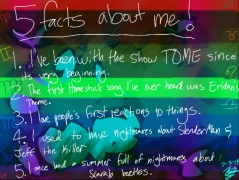 5 facts about me!
1. I've been with the show TOME since
its very beginning.
2. The first Homestuck song I've ever heard was Eridan's
Theme.
3. I love people's first reactions to things.
4. I used to have nightmares about Slenderman &
Jeff the Killer
5. I once had a summer full of nightmares about
Scarab beetles.